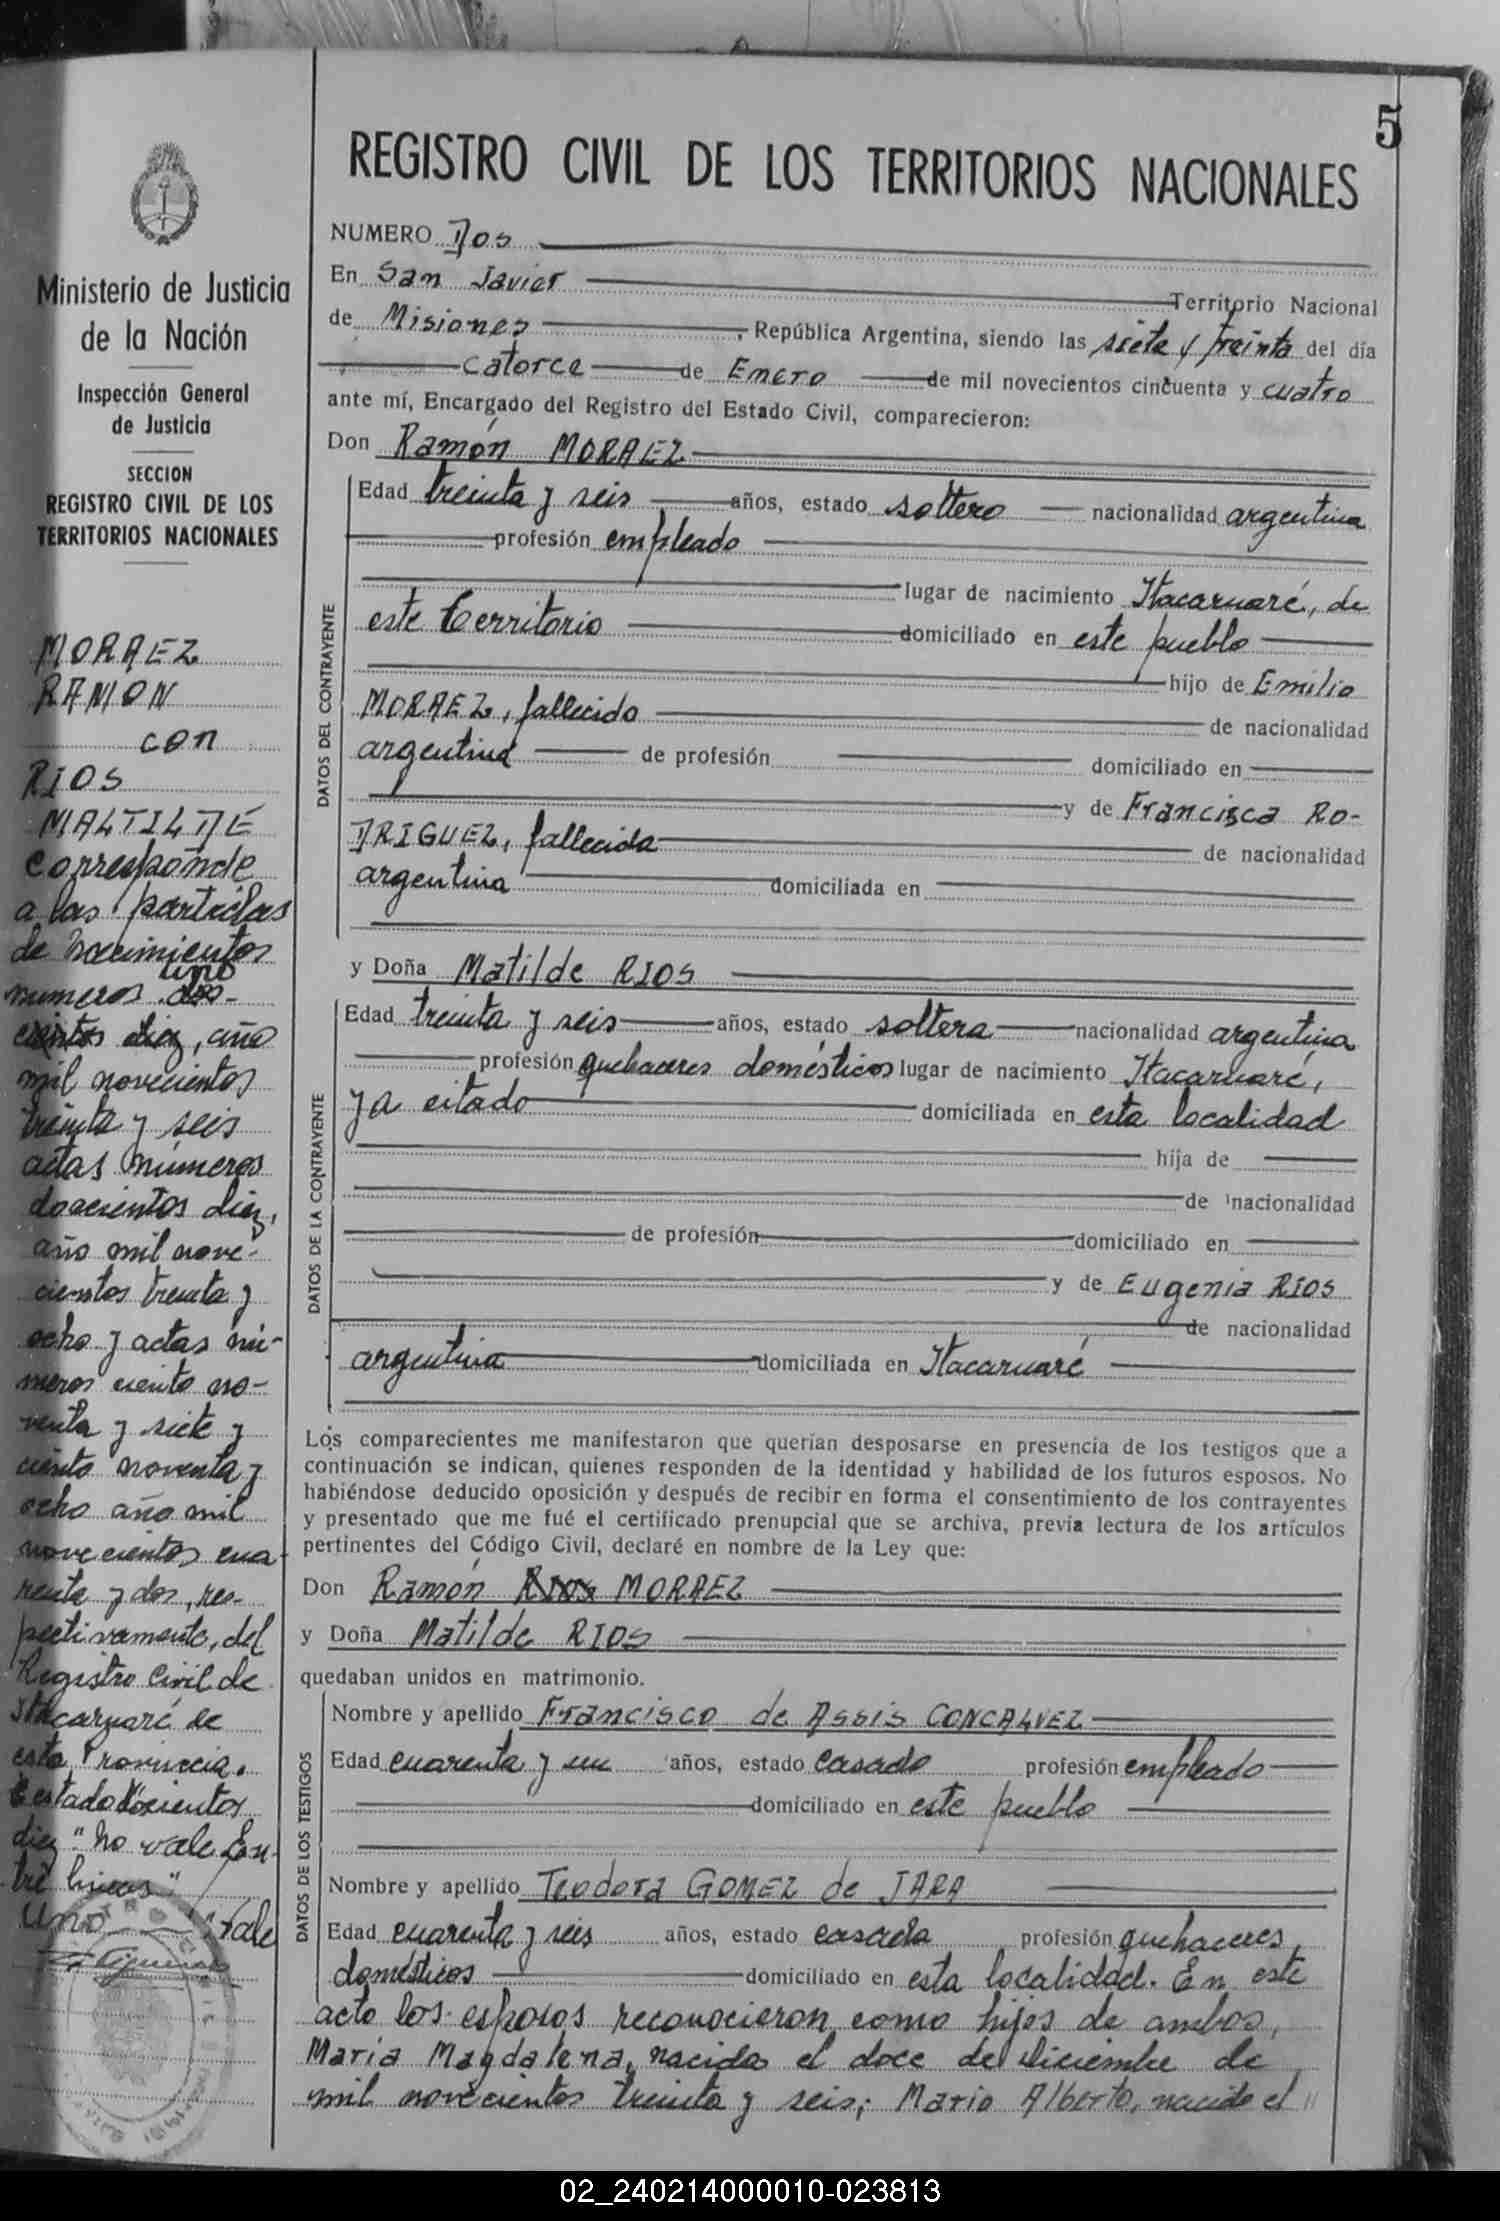 5
REGISTRO CIVIL DE LOS TERRITORIOS NACIONALES
Ministerio de Justicia
de la Nación
Inspección General
de Justicia
SECCION
REGISTRO CIVIL DE LOS
TERRITORIOS NACIONALES
MORAEZ
RAMON
con
RIOS
MALTILDE
Corresponde
a las partidas
de Nacimientos
uno
numeros dos-
cientos diez, año
mil novecientos
treinta y seis
actas números
doscientos diez,
año mil nove-
cientos treinta y
ocho y actas nú-
meros ciento no-
venta y siete y
ciento noventa y
ocho año mil
novecientos cua-
renta y dos, res-
pectivamente, del
Registro Civil de
Itacaruaré de
esta Provincia.
Testado doscientos
diez "No vale En-
tre lineas"
uno Vale
NUMERO Dos
En San Javier Territorio Nacional
de Misiones, República Argentina, siendo las siete y treinta del día
catorce de Enero de mil novecientos cincuenta y cuatro
ante mí, Encargado del Registro del Estado Civil, comparecieron:
Don Ramón MORAEZ
DATOS DEL CONTRAYENTE
Edad treinta y seis años, estado soltero nacionalidad argentina
profesión empleado
lugar de nacimiento Itacaruaré, de
este territorio domiciliado en este pueblo
hijo de Emilio
MORAEZ, fallecido de nacionalidad
argentina de profesión domiciliado en
y de Francisca RO-
DRIGUEZ, fallecida de nacionalidad
argentina domiciliada en
y Doña Matilde RIOS
DATOS DE LA CONTRAYENTE
Edad treinta y seis años, estado soltera nacionalidad argentina
profesión quehaceres domésticos lugar de nacimiento Itacaruaré,
ya citado domiciliada en esta localidad
hija de
de nacionalidad
de profesión domiciliado en
y de Eugenia RIOS
de nacionalidad
argentina domiciliada en Itacaruaré
Los comparecientes me manifestaron que querían desposarse en presencia de los testigos que a
continuación se indican, quienes responden de la identidad y habilidad de los futuros esposos. No
habiéndose deducido oposición y después de recibir en forma el consentimiento de los contrayentes
y presentado que me fué el certificado prenupcial que se archiva, previa lectura de los artículos
pertinentes del Código Civil, declaré en nombre de la Ley que:
Don Ramón RIOS MORAEZ
y Doña Matilde RIOS
quedaban unidos en matrimonio.
DATOS DE LOS TESTIGOS
Nombre y apellido Francisco de Assis CONCALVEZ
Edad cuarenta y un años, estado casado profesión empleado
domiciliado en este pueblo
Nombre y apellido Teodora GOMEZ de JARA
Edad cuarenta y seis años, estado casada profesión quehaceres
domésticos domiciliado en esta localidad. En este
acto los esposos reconocieron como hijos de ambos,
María Magdalena, nacida el doce de diciembre de
mil novecientos treinta y seis; Mario Alberto, nacido el
02_240214000010-023813